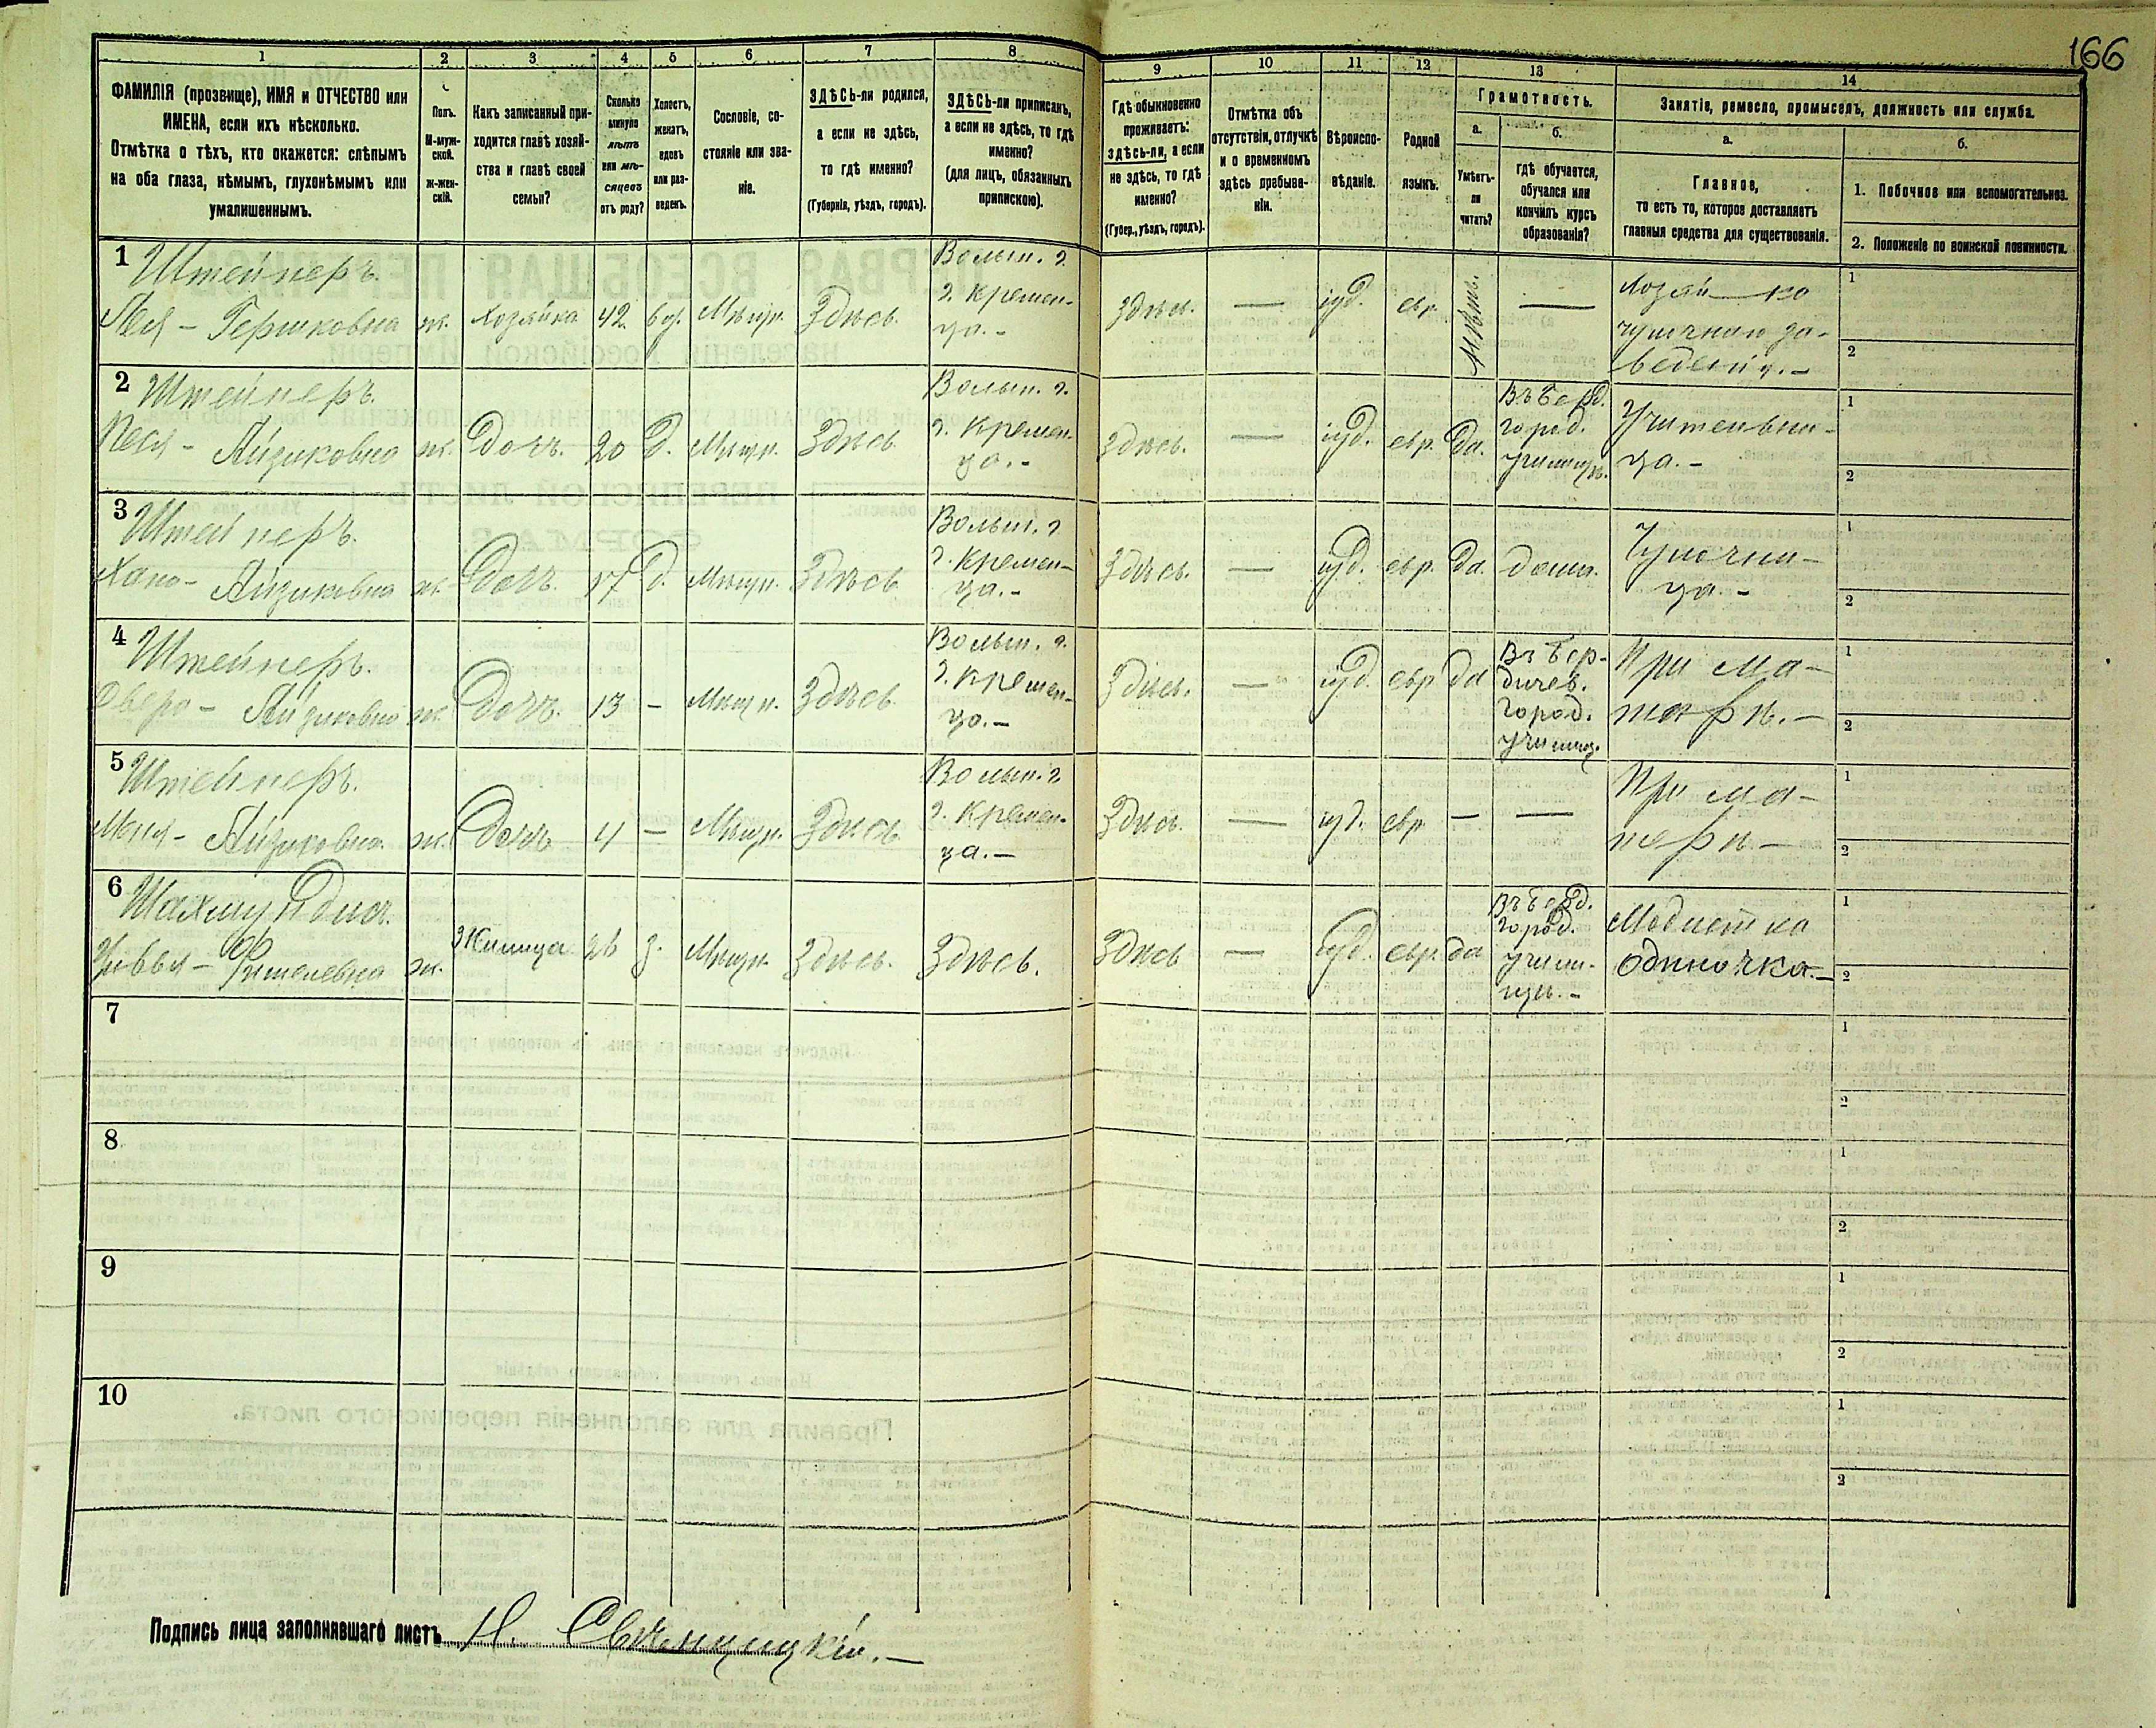 166
1 2 3 4 5 6 7 8 9 10 11 12 13 14
ФАМИЛІЯ (прозвище), ИМЯ и ОТЧЕСТВО или
ИМЕНА, если ихъ нѣсколько.
Отмѣтка о тѣхъ, кто окажется: слѣпымъ
на оба глаза, нѣмымъ, глухонѣмымъ или
умалишеннымъ.
Полъ.
М-муж-
ской.
ж-жен-
скій.
Какъ записанный при-
ходится главѣ хозяй-
ства и главѣ своей
семьи?
Сколько
минуло
лѣтъ
или мѣ-
сяцевъ
отъ роду?
Холостъ,
женатъ,
вдовъ
или раз-
веденъ.
Сословіе, со-
стояніе или зва-
ніе.
ЗДѢСЬ-ли родился,
а если не здѣсь,
то гдѣ именно?
(Губернія, уѣздъ, городъ).
ЗДѢСЬ-ли приписанъ,
а если не здѣсь, то гдѣ
именно?
(для лицъ, обязанныхъ
припискою).
Гдѣ обыкновенно
проживаетъ:
здѣсь-ли, а если
не здѣсь, то гдѣ
именно?
(Губер., уѣздъ, городъ).
Отмѣтка объ
отсутствіи, отлучкѣ
и о временномъ
здѣсь пребыва-
ніи.
Вѣроиспо-
вѣданіе.
Родной
языкъ.
Грамотность.
а.
Умѣетъ-
ли
читать?
б.
гдѣ обучается,
обучался или
кончилъ курсъ
образованія?
Занятіе, ремесло, промыселъ, должность или служба.
а.
Главное,
то есть то, которое доставляетъ
главныя средства для существованія.
б.
1. Побочное или вспомогательное.
2. Положеніе по воинской повинности.
1 Штейнеръ. Волын. г.
Лея - Гершковна ж. хозяйка 42 вд. Мѣщ. Здѣсь г. Кремен-
ца. - Здѣсь. — іуд. евр. —
чулочнаго за-
веденія. -
1
2
2 Штейнеръ. Волын. г.
Песя - Айзиковна ж. Дочь. 20 д. Мѣщ. Здѣсь г. Кремен-
ца. - Здѣсь. — іуд. евр. да. Въ Берд.
город.
училищѣ. Учительни-
ца. -
1
2
3 Штейнеръ. Волын. г.
Хана - Айзиковна ж. Дочь 17 д. Мѣщ. Здѣсь г. Кремен-
ца. - Здѣсь. — іуд. евр. да дома. Чулочни-
ца -
1
2
4 Штейнеръ. Волын. г.
Двера - Айзиковна ж. Дочь. 13 - Мѣщ. Здѣсь г. Кремен-
ца. - Здѣсь. — іуд. евр да Въ Бер-
дичев.
город.
училищ. При ма-
терѣ. -
1
2
5 Штейнеръ. Волын. г.
Айзиковна ж. Дочь 4 - Мѣщ. Здѣсь г. Кремен-
ца. - Здѣсь. — іуд. евр. — — При ма-
терѣ -
1
2
6
Цивья - ж. Жилица 26 з. Мѣщ. Здѣсь. Здѣсь. Здѣсь — іуд. евр. да Въ Берд.
город.
учили-
щѣ. - Модистка
одиночка. -
1
2
7
1
2
8
1
2
9
1
2
10
1
2
Подпись лица заполнявшаго листъ Н. Свѣнцицкій. -